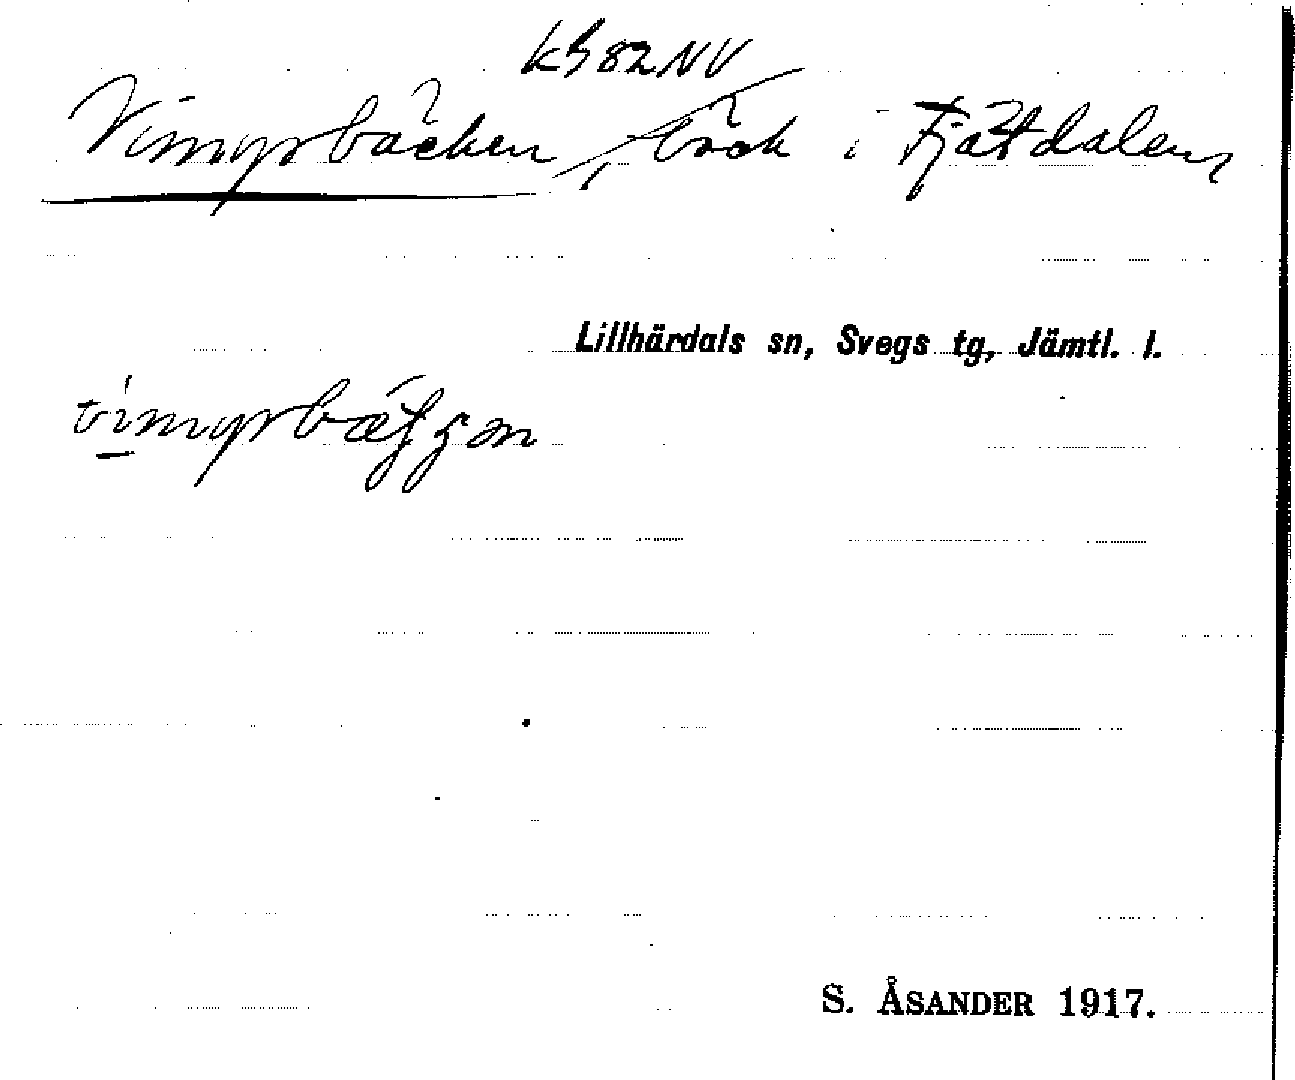 k582NV
Vimyrbäcken, bäck i Fjätdalen,
Lillhärdals sn, Svegs tg, Jämtl. l.
S. ÅSANDER 1917.